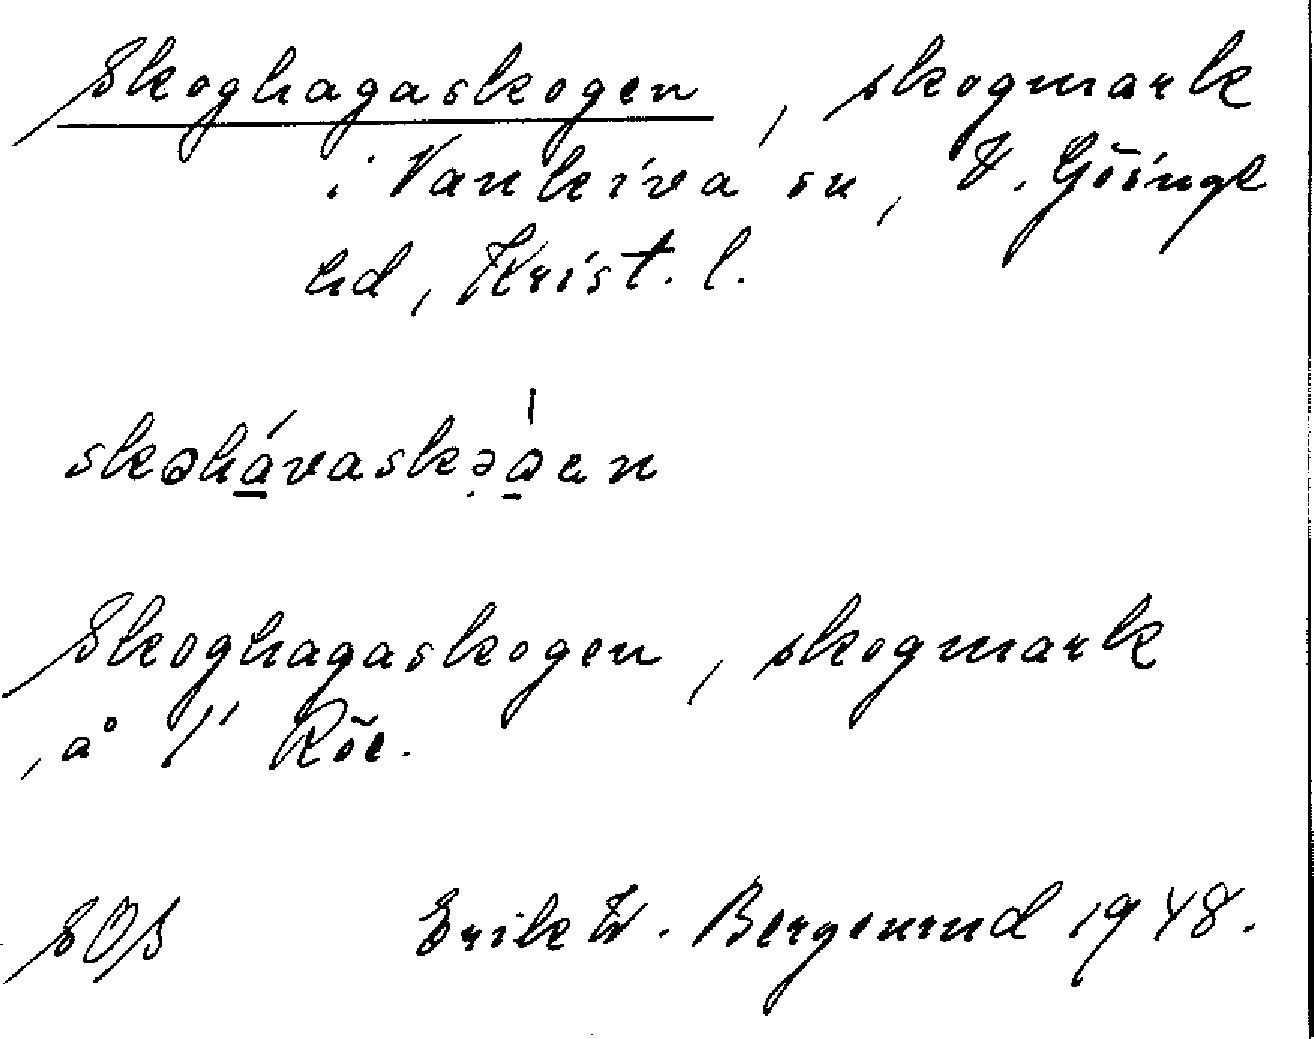 Skoghagaskogen, skogmark
i Vankiva sn, V. Göinge
hd, Krist. l.
Skoghagaskogen, skogmark
å 1/1 Röe.
SOS Erik W. Bergenrud 1948.